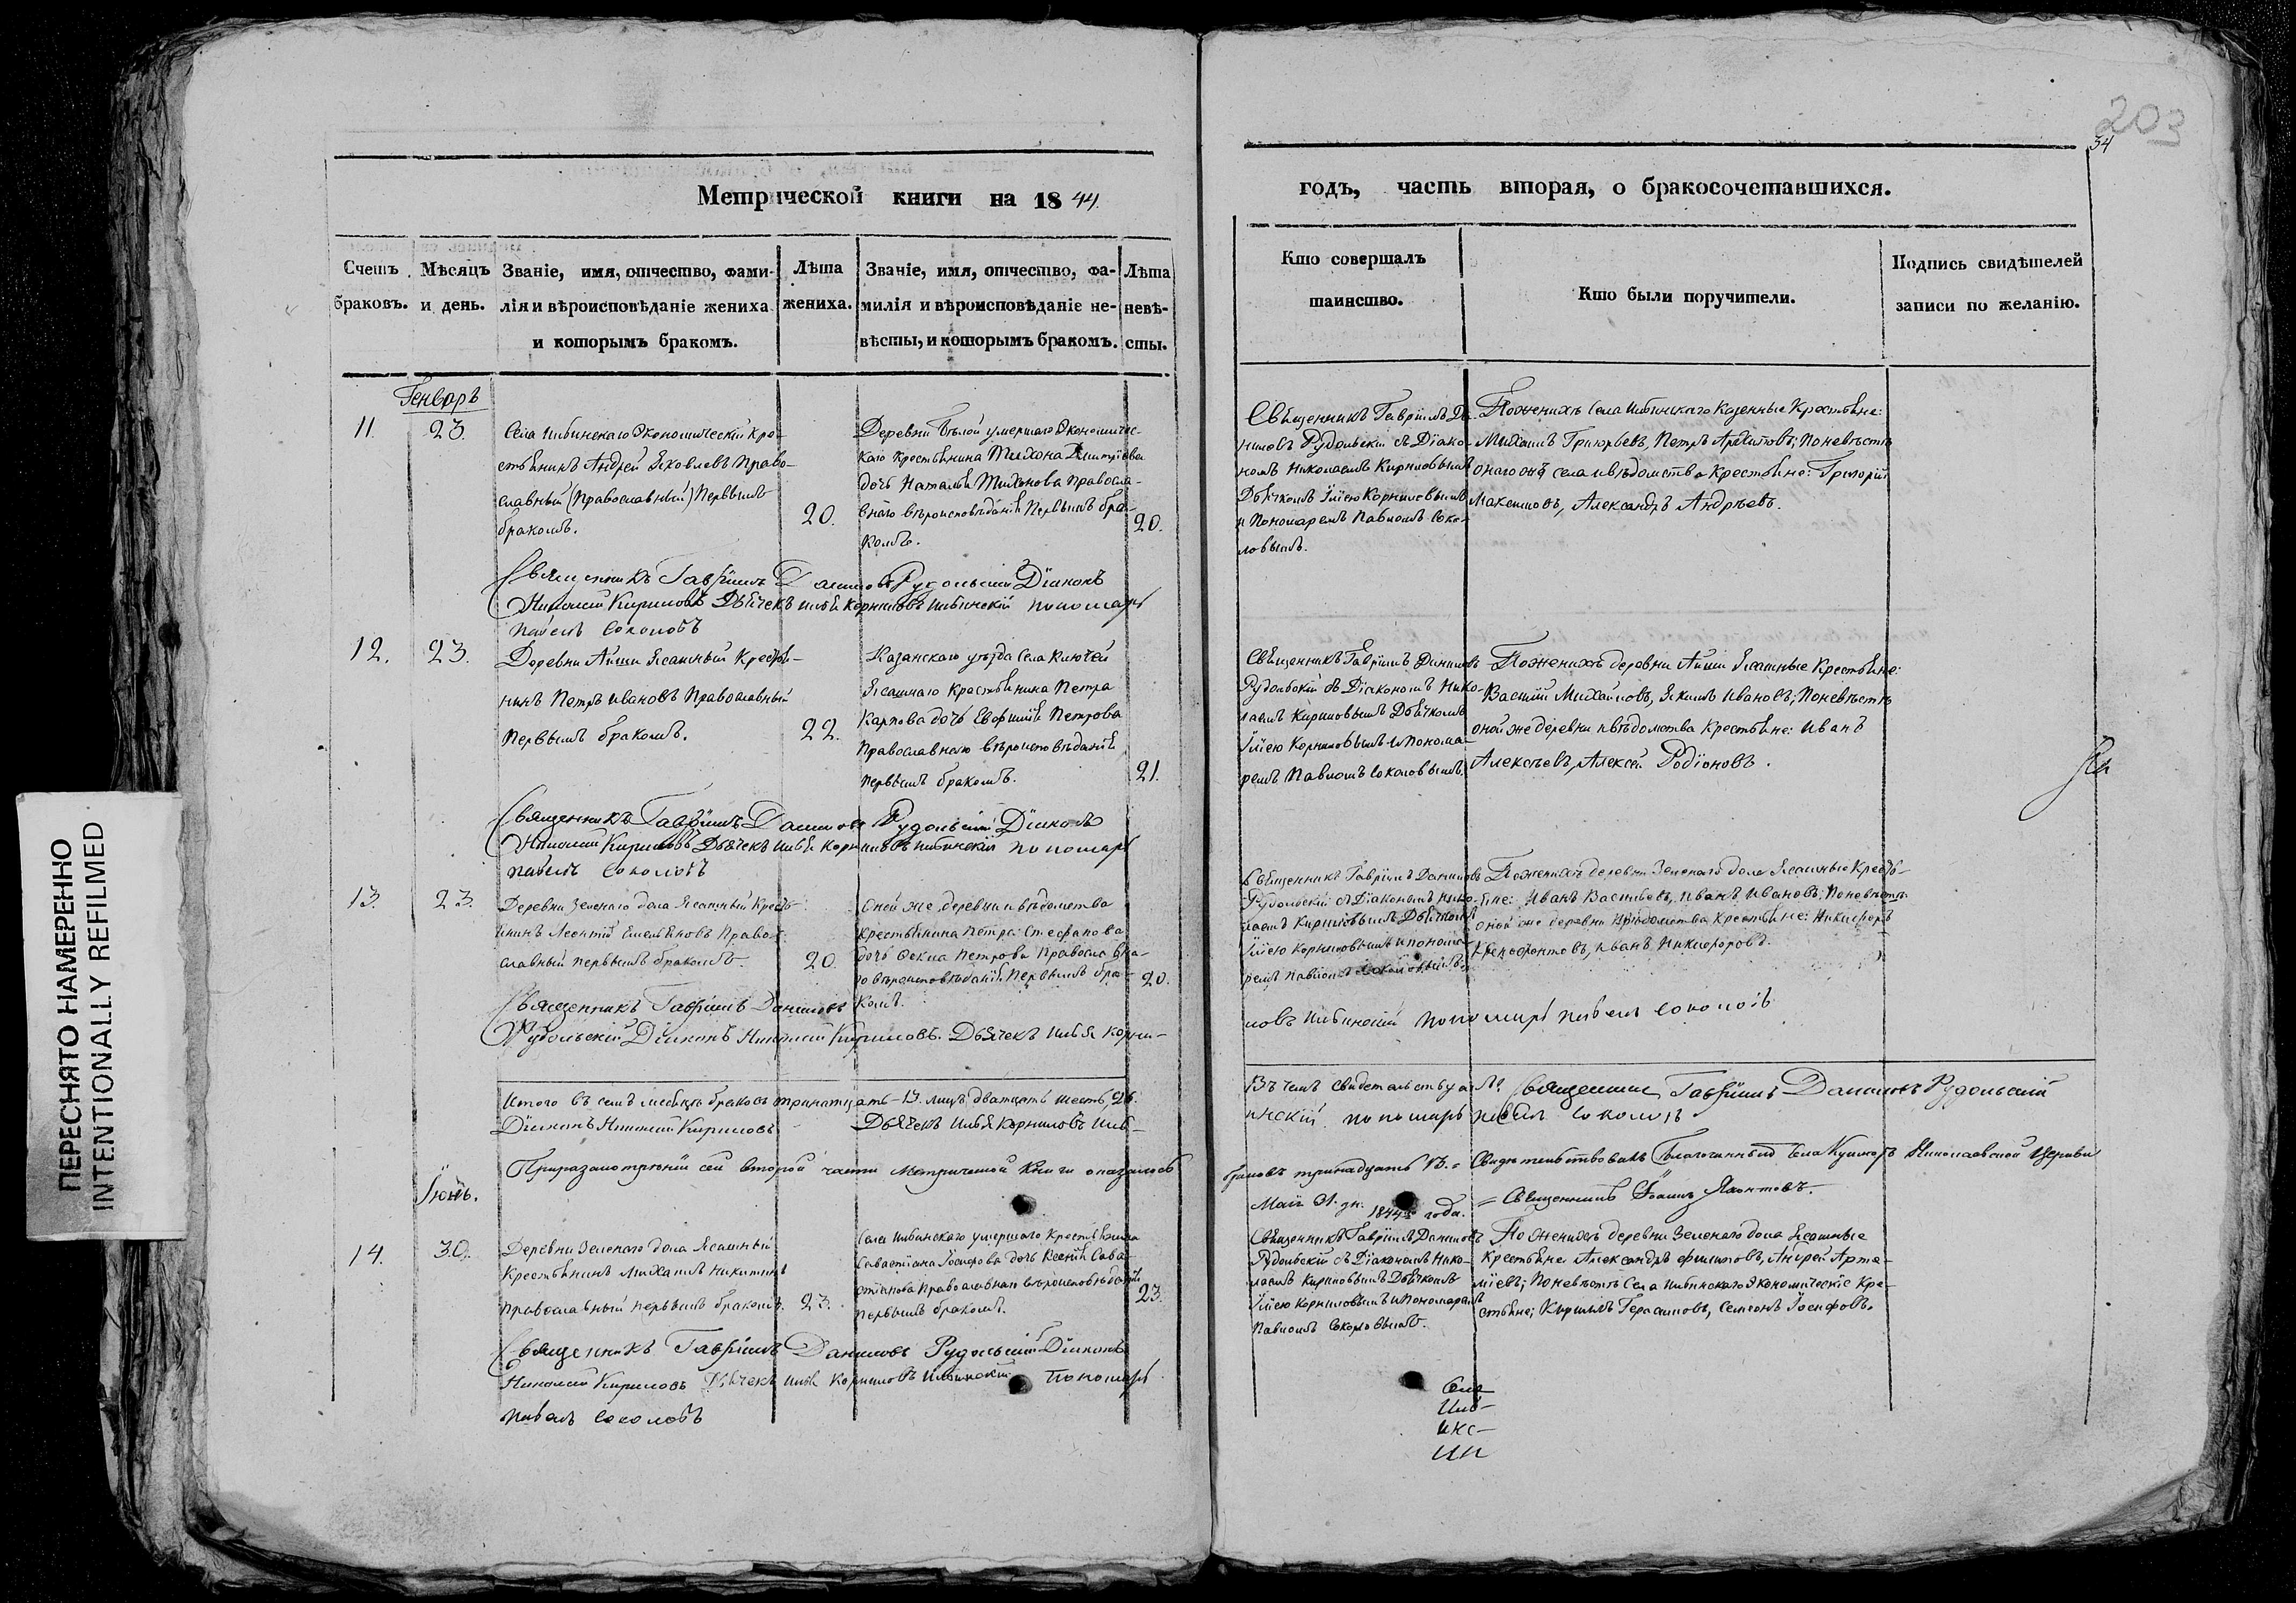 203
34
Метрической книги на 1844.
годъ, часть вторая, о бракосочетавшихся.
Счетъ браковъ.
Мѣсяцъ и день.
Званіе, имя, отчество, фами-
лія и вѣроисповѣданіе жениха
и которымъ бракомъ.
Лѣта
жениха.
Званіе, имя, отчество, фа-
милія и вѣроисповѣданіе не-
вѣсты, и которымъ бракомъ.
Лѣта
невѣ-
сты.
Кто совершалъ
таинство.
Кто были поручители.
Подпись свидѣтелей
записи по желанію.
Генваръ
11.
23.
Села Ильинскаго Экономическій кре-
стьянинъ Андрей Яковлевъ Право-
славный (православный) первымъ
бракомъ.
20.
Деревни Бѣлой умершаго Экономичес-
каго крестьянина Тихона Дмитріева
дочь Наталья Тихонова правосла-
внаго вѣроисповѣданія первымъ бра-
комъ.
20.
Священникъ Гавріилъ Да-
ниловъ Рудольскій съ Діако-
номъ Николаемъ Кириловымъ
Дьячкомъ Ильею Корниловымъ
и Пономаремъ Павломъ Соко-
ловымъ.
По женихѣ Села Ильинскаго Казенные Крестьяне:
Михаилъ Григорьевъ, Петръ Архиповъ; по невѣстѣ
онаго села и вѣдомства Крестьяне: Григорій
Максимовъ, Александръ Андрѣевъ.
Священникъ Гавріилъ Даниловъ Рудольскій Діаконъ
Николай Кириловъ Дьячекъ Илья Корниловъ Ильинскій пономарь
Павелъ Соколовъ
12.
23.
Деревни Айши Ясашный Крестья-
нинъ Петръ Ивановъ Православный
первымъ бракомъ.
22.
Казанскаго уѣзда села Ключей
Ясашнаго Крестьянина Петра
Карпова дочь Евфимія Петрова
православнаго вѣроисповѣданія
первымъ бракомъ.
21.
Священникъ Гавріилъ Даниловъ
Рудольскій съ Діакономъ Нико-
лаемъ Кириловымъ Дьячкомъ
Ильею Корниловымъ и Понома-
ремъ Павломъ Соколовымъ.
По женихѣ деревни Айши Ясашные Крестьяне:
Василій Михайловъ, Якимъ Ивановъ; по невѣстѣ
оной же деревни и вѣдомства Крестьяне: Иванъ
Алексѣевъ, Алексѣй Родіоновъ.
Священникъ Гавріилъ Даниловъ Рудольскій Діаконъ
Николай Кириловъ Дьячекъ Илья Корниловъ Ильинскій пономарь
Павелъ Соколовъ
13.
23.
Деревни Зеленаго дола Ясашный Кресть-
янинъ Леонтій Емельяновъ Право-
славный первымъ бракомъ
20.
Оной же деревни и вѣдомства
Крестьянина Петра Стефанова
дочь Фекла Петрова православна-
го вѣроисповѣданія первымъ бра-
комъ.
20.
Священникъ Гавріилъ Даниловъ
Рудольскій съ Діакономъ Нико-
лаемъ Кириловымъ Дьячкомъ
Ильею Корниловымъ и понома-
ремъ Павломъ Соколовымъ.
По женихѣ деревни Зеленаго дола Ясашные Кресть-
яне: Иванъ Васильевъ, Иванъ Ивановъ; по невѣстѣ
оной же деревни и вѣдомства Крестьяне: Никифоръ
Ксенофонтовъ, Иванъ Никифоровъ.
Священникъ Гавріилъ Даниловъ
Рудольскій Діаконъ Николай Кириловъ. Дьячекъ Илья Корни-
ловъ Ильинскій пономарь Павелъ Соколовъ
Итого въ семъ мѣсяцѣ браковъ тринатцать - 13. лицъ дватцать шесть, 26.
Въ чемъ свидетельствуемъ. Священникъ Гавріилъ Даниловъ Рудольскій
Діаконъ Николай Кириловъ Дьячекъ Илья Корниловъ Иль-
инскій пономарь Павелъ Соколовъ
При разсмотрѣніи сей второй части Метрической Книги оказалось
браковъ тринадцать 13. = Свидѣтельствовалъ Благочинный Села Николаевской Церкви
Маія 31. дн. 1844го года. = Священникъ Іоаннъ Яхонтовъ.
Іюнь.
14.
30.
Деревни Зеленаго дола Ясашный
Крестьянинъ Михаилъ Никитинъ
православный первымъ бракомъ.
23.
Села Ильинскаго умершаго Крестьянина
Савастіана Іосифова дочь Ксенія Сава-
стіянова православнаго вѣроисповѣданія
первымъ бракомъ.
23.
Священникъ Гавріилъ Даниловъ
Рудольскій съ Діакономъ Нико-
лаемъ Кириловымъ Дьячкомъ
Ильею Корниловымъ и Пономаремъ
Павломъ Соколовымъ.
По женихѣ деревни Зеленаго дола Ясашные
Крестьяне Александръ Филиповъ, Андрей Арте-
міевъ; по невѣстѣ Села Ильинскаго Экономическіе Кре-
стьяне; Кирилъ Герасимовъ, Семенъ Іосифовъ.
Священникъ Гавріилъ Даниловъ Рудольскій Діаконъ
Николай Кириловъ Дьячекъ Илья Корниловъ Ильинскій пономарь
Павелъ Соколовъ
ПЕРЕСНЯТО НАМЕРЕННО
INTENTIONALLY REFILMED